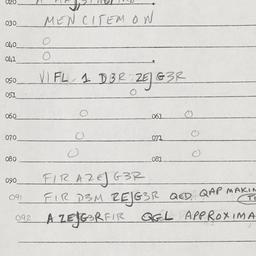 020
030 MEN CITEM O N
040 O
041 O
050 VIFL 1 D3R ZEJ G3R
051 O
060 O 061 O
070 O 071 O
080 O 081 O
090 FIR A ZEJ G3R
091 FIR D3M ZEJG3R QED QAP MAKIN
092 A ZEJG3RFIR QGL APPROXIMA